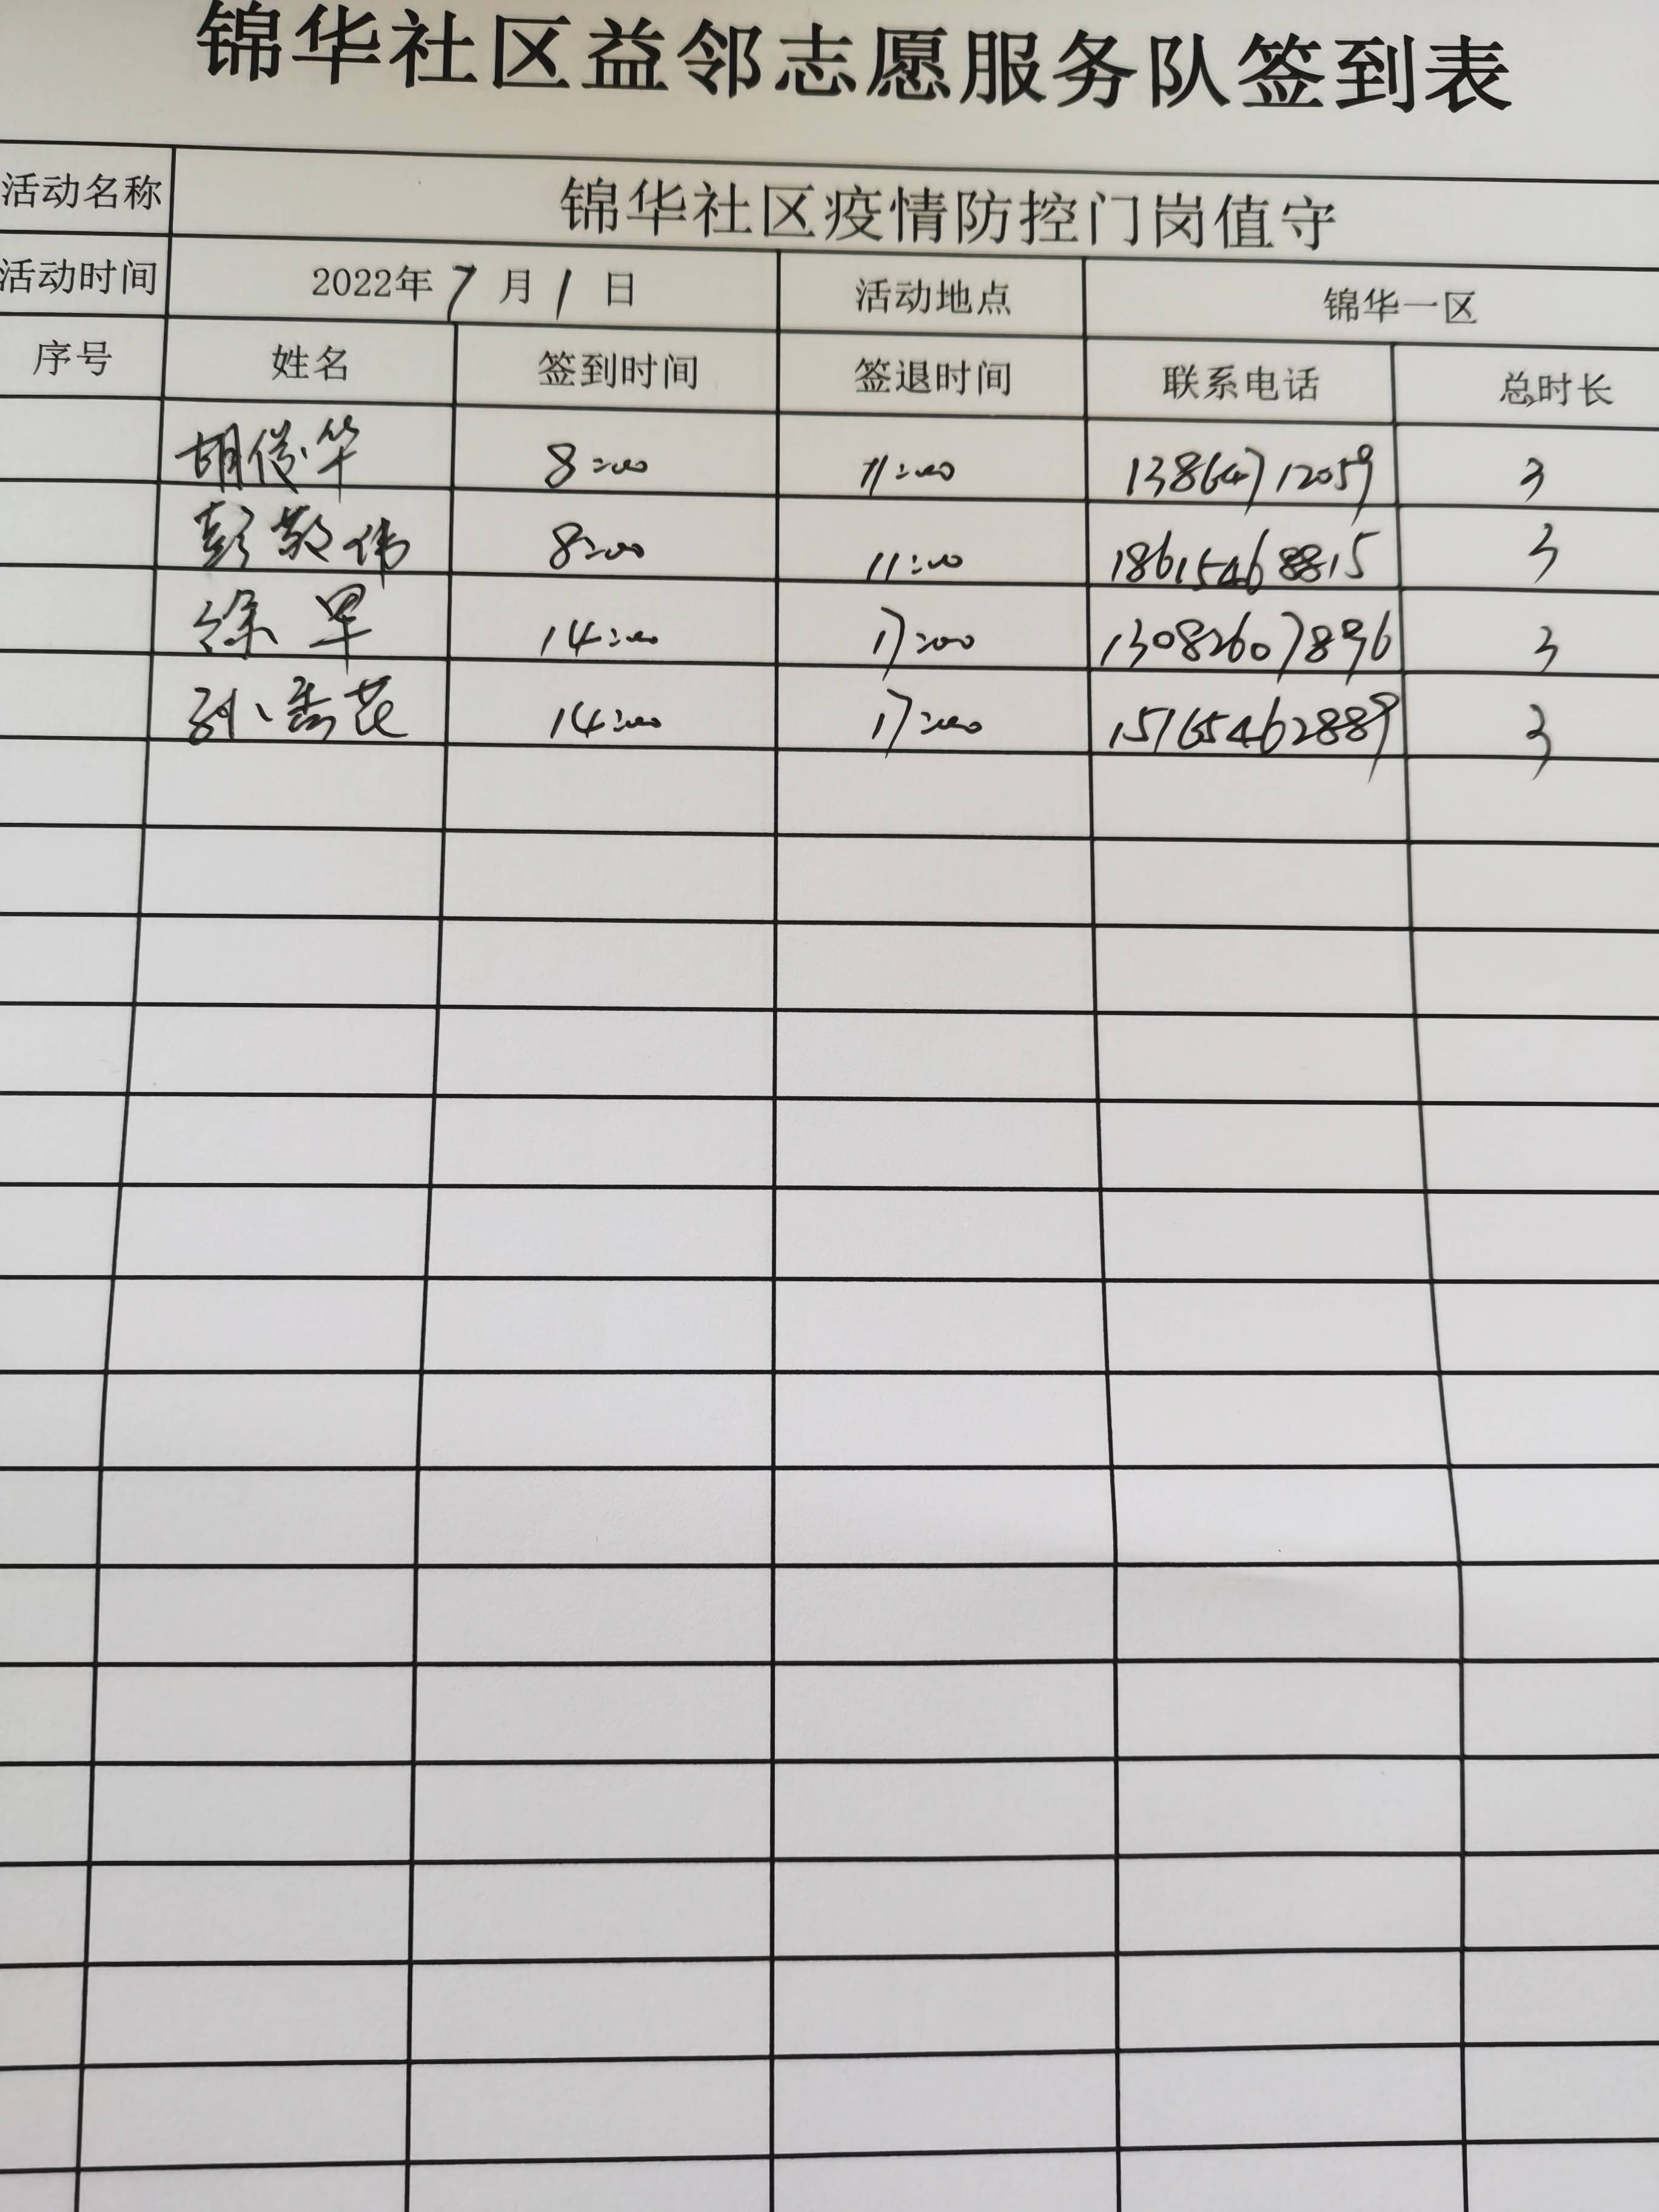 锦华社区益邻志愿服务队签到表
活动名称 锦华社区疫情防控门岗值守
活动时间 2022年7月1日 活动地点 锦华一区
序号 姓名 签到时间 签退时间 联系电话 总时长
胡俊华 8:00 11:00 13864712059 3
彭敬伟 8:00 11:00 18615468815 3
徐早 14:00 17:00 13082607896 3
孙香花 14:00 17:00 15165462889 3